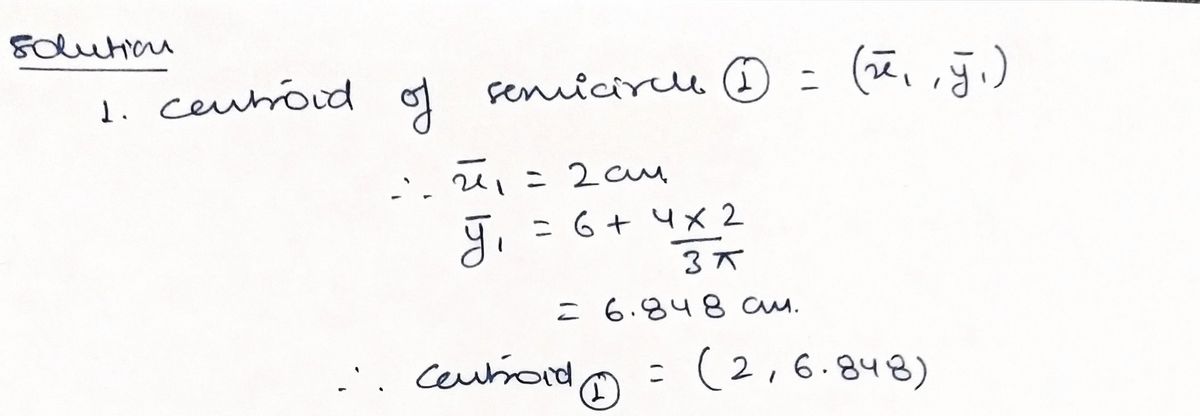 Solution
1. centroid of semicircle ① = (x̄₁, ȳ₁)
∴ x̄₁ = 2 cm
ȳ₁ = 6 + 4×2/3π
= 6.848 cm.
∴ centroid ① = (2, 6.848)